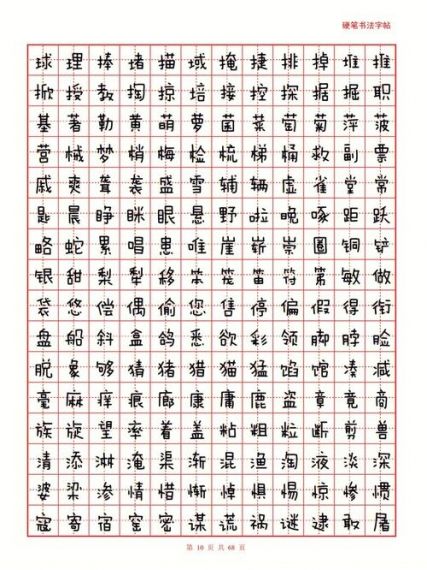 硬笔书法字帖
球理捧堵描域掩捷排掉堆推
掀授教掏掠培接控探据掘职
基著勒黄萌萝菌菜萄菊萍菠
营械梦梢梅检梳梯桶救副票
戚爽聋袭盛雪辅辆虚雀堂常
匙晨睁眯眼悬野啦晚啄距跃
略蛇累唱患唯崖崭崇圈铜铲
银甜梨犁移笨笼笛符第敏做
袋悠偿偶偷您售停偏假得衔
盘船斜盒鸽悉欲彩领脚脖脸
脱象够猜猪猎猫猛馅馆凑减
毫麻痒痕廊康庸鹿盗章竟商
族旋望率着盖粘粗粒断剪兽
清添淋淹渠渐混渔淘液淡深
婆梁渗情惜惭悼惧惕惊惨惯
寇寄宿窑密谋谎祸谜逮敢屠
第 10 页 共 68 页